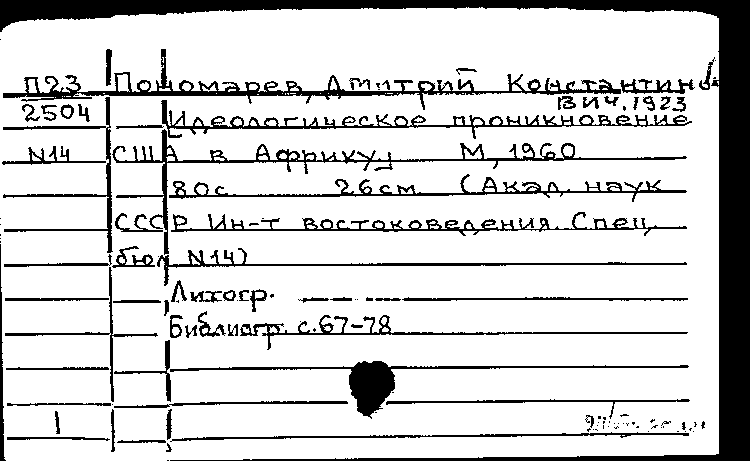 П23 Пономарев, Дмитрий Константино
вич, 1923
2504 Идеологическое проникновение
N14 США в Африку М, 1960
80с 26см (Акад. наук
СССР Ин-т востоковедения. Спец,
бюл N14)
Литогр.
Библиогр. с.67-78
1